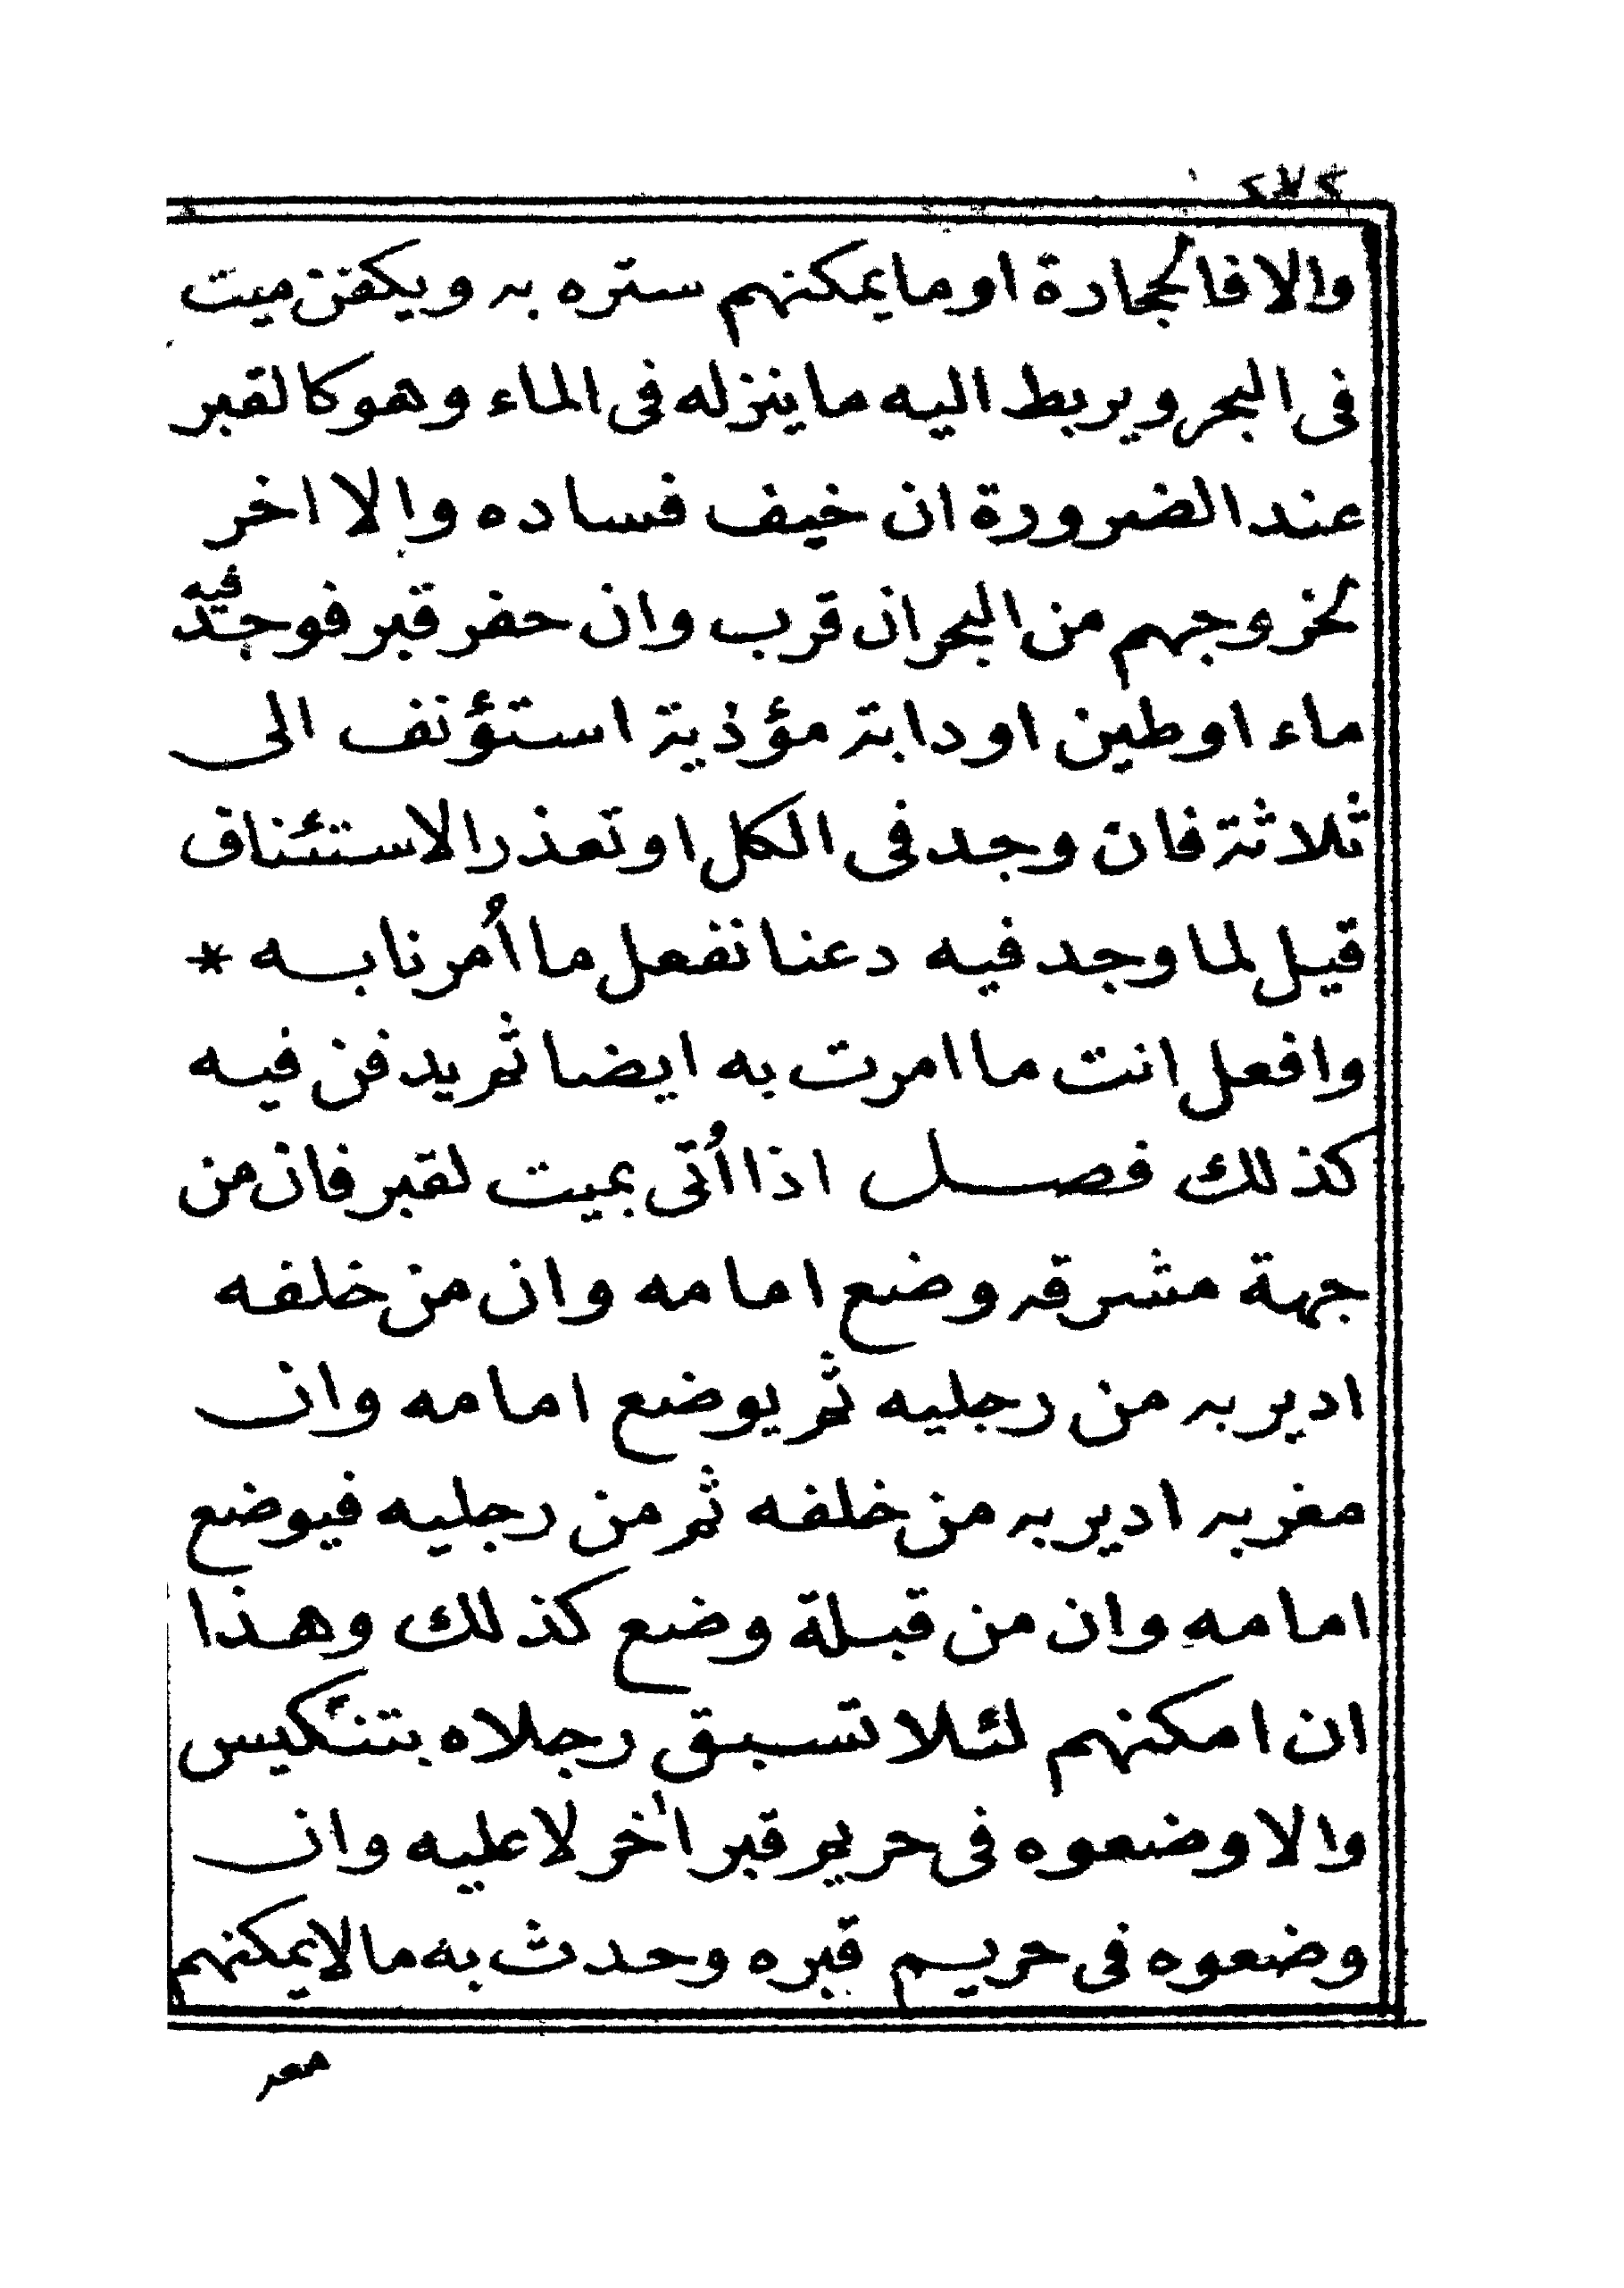 والا فالحجارة او ما يمكنهم ستره به ويكفن ميت
فى البحر ويربط اليه ما ينزله فى الماء وهو كالقبر
عند الضرورة ان خيف فساده والا اخر
لخروجهم من البحر ان قرب وان حفر قبر فوجد فيه
ماء او طين او دابة مؤذية استؤنف الى
ثلاثة فان وجد فى الكل او تعذر الاستئناف
قيل لما وجد فيه دعنا نفعل ما اُمرنا به *
وافعل انت ما امرت به ايضا ثم يدفن فيه
كذلك فصل اذا اُتى بميت لقبر فان من
جهة مشرقه وضع امامه وان من خلفه
ادير به من رجليه ثم يوضع امامه وان
مغربه ادير به من خلفه ثم من رجليه فيوضع
امامه وان من قبلة وضع كذلك وهذا
ان امكنهم لئلا تسبق رجلاه بتنكيس
والا وضعوه فى حريم قبر اخر لا عليه وان
وضعوه فى حريم قبره وحدث به ما لا يمكنهم
معه